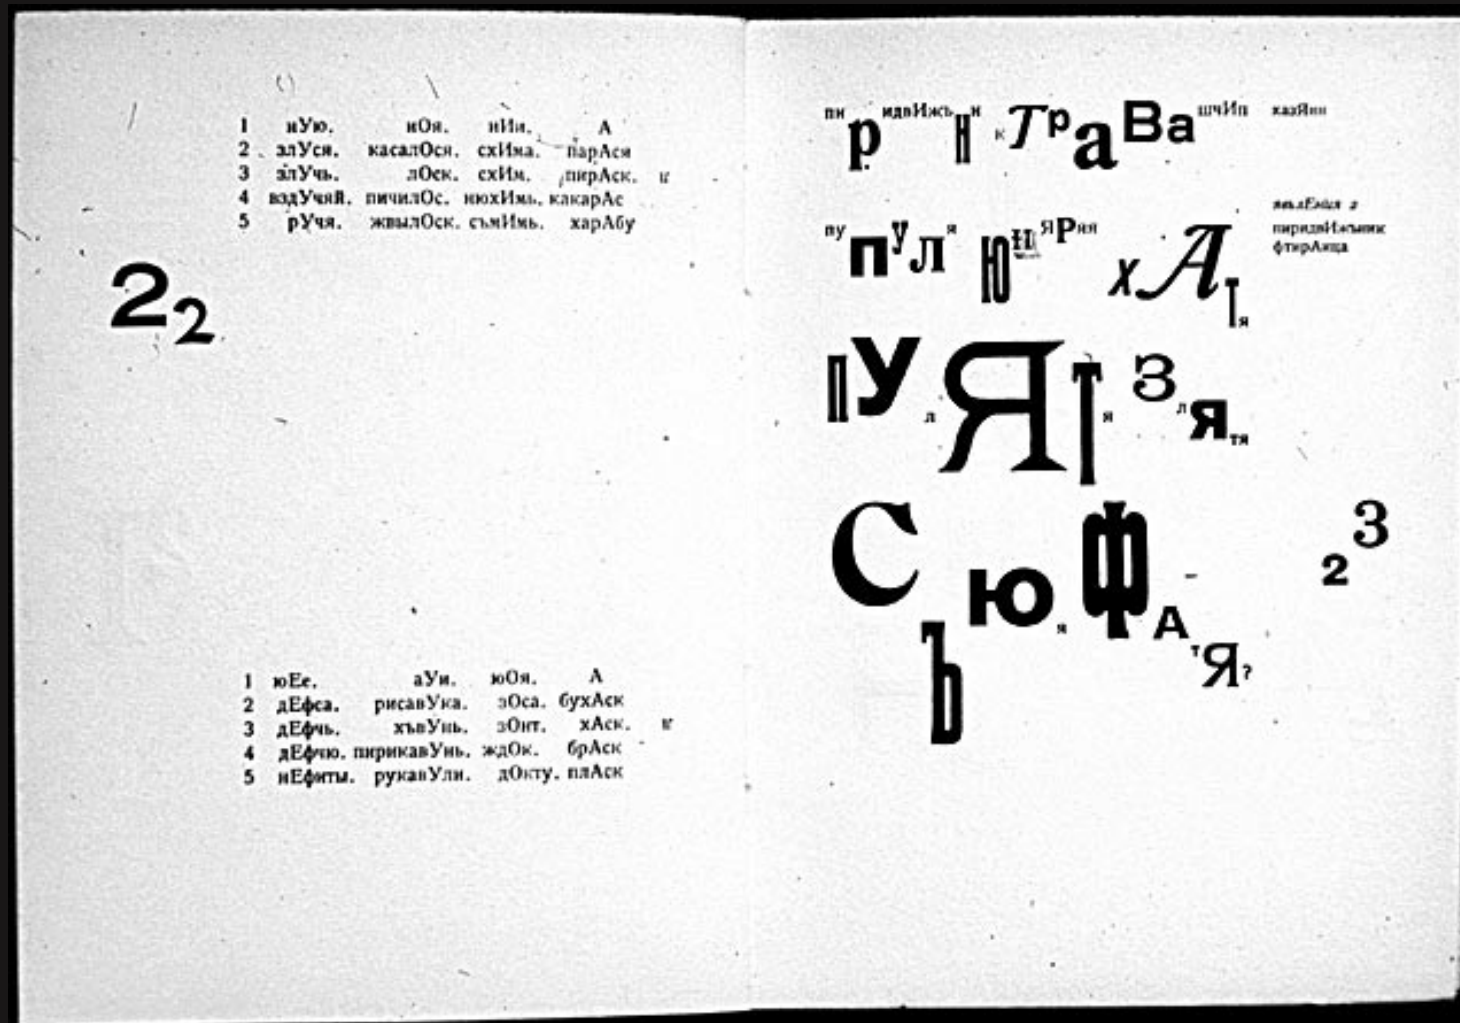 1 иУю. иОя. иИи. А
2 злУся. касалОся. схИма. парАся
3 злУчь. лОск. схИм. пирАск. и
4 воздУчяй. пичилОс. нюхИмь. какарАс
5 рУчя. жвылОск. съмИмь. харАбу
22
1 юЕе. аУи. юОя. А
2 дЕфса. рисавУка. зОса. бухАск
3 дЕфчь. хъвУнь. зОнт. хАск. и
4 дЕфчю. пирикавУнь. ждОк. брАск
5 нЕфиты. рукавУли. дОкту. плАск
пиридвИжънии к ТраВа шчИп хазЯин
явлЕния 2
пу пУля ЮнЯРяя хАТя
пиридвИжъник
фтирАица
пУляТя Злятя
СЪюяФАтЯ?
23